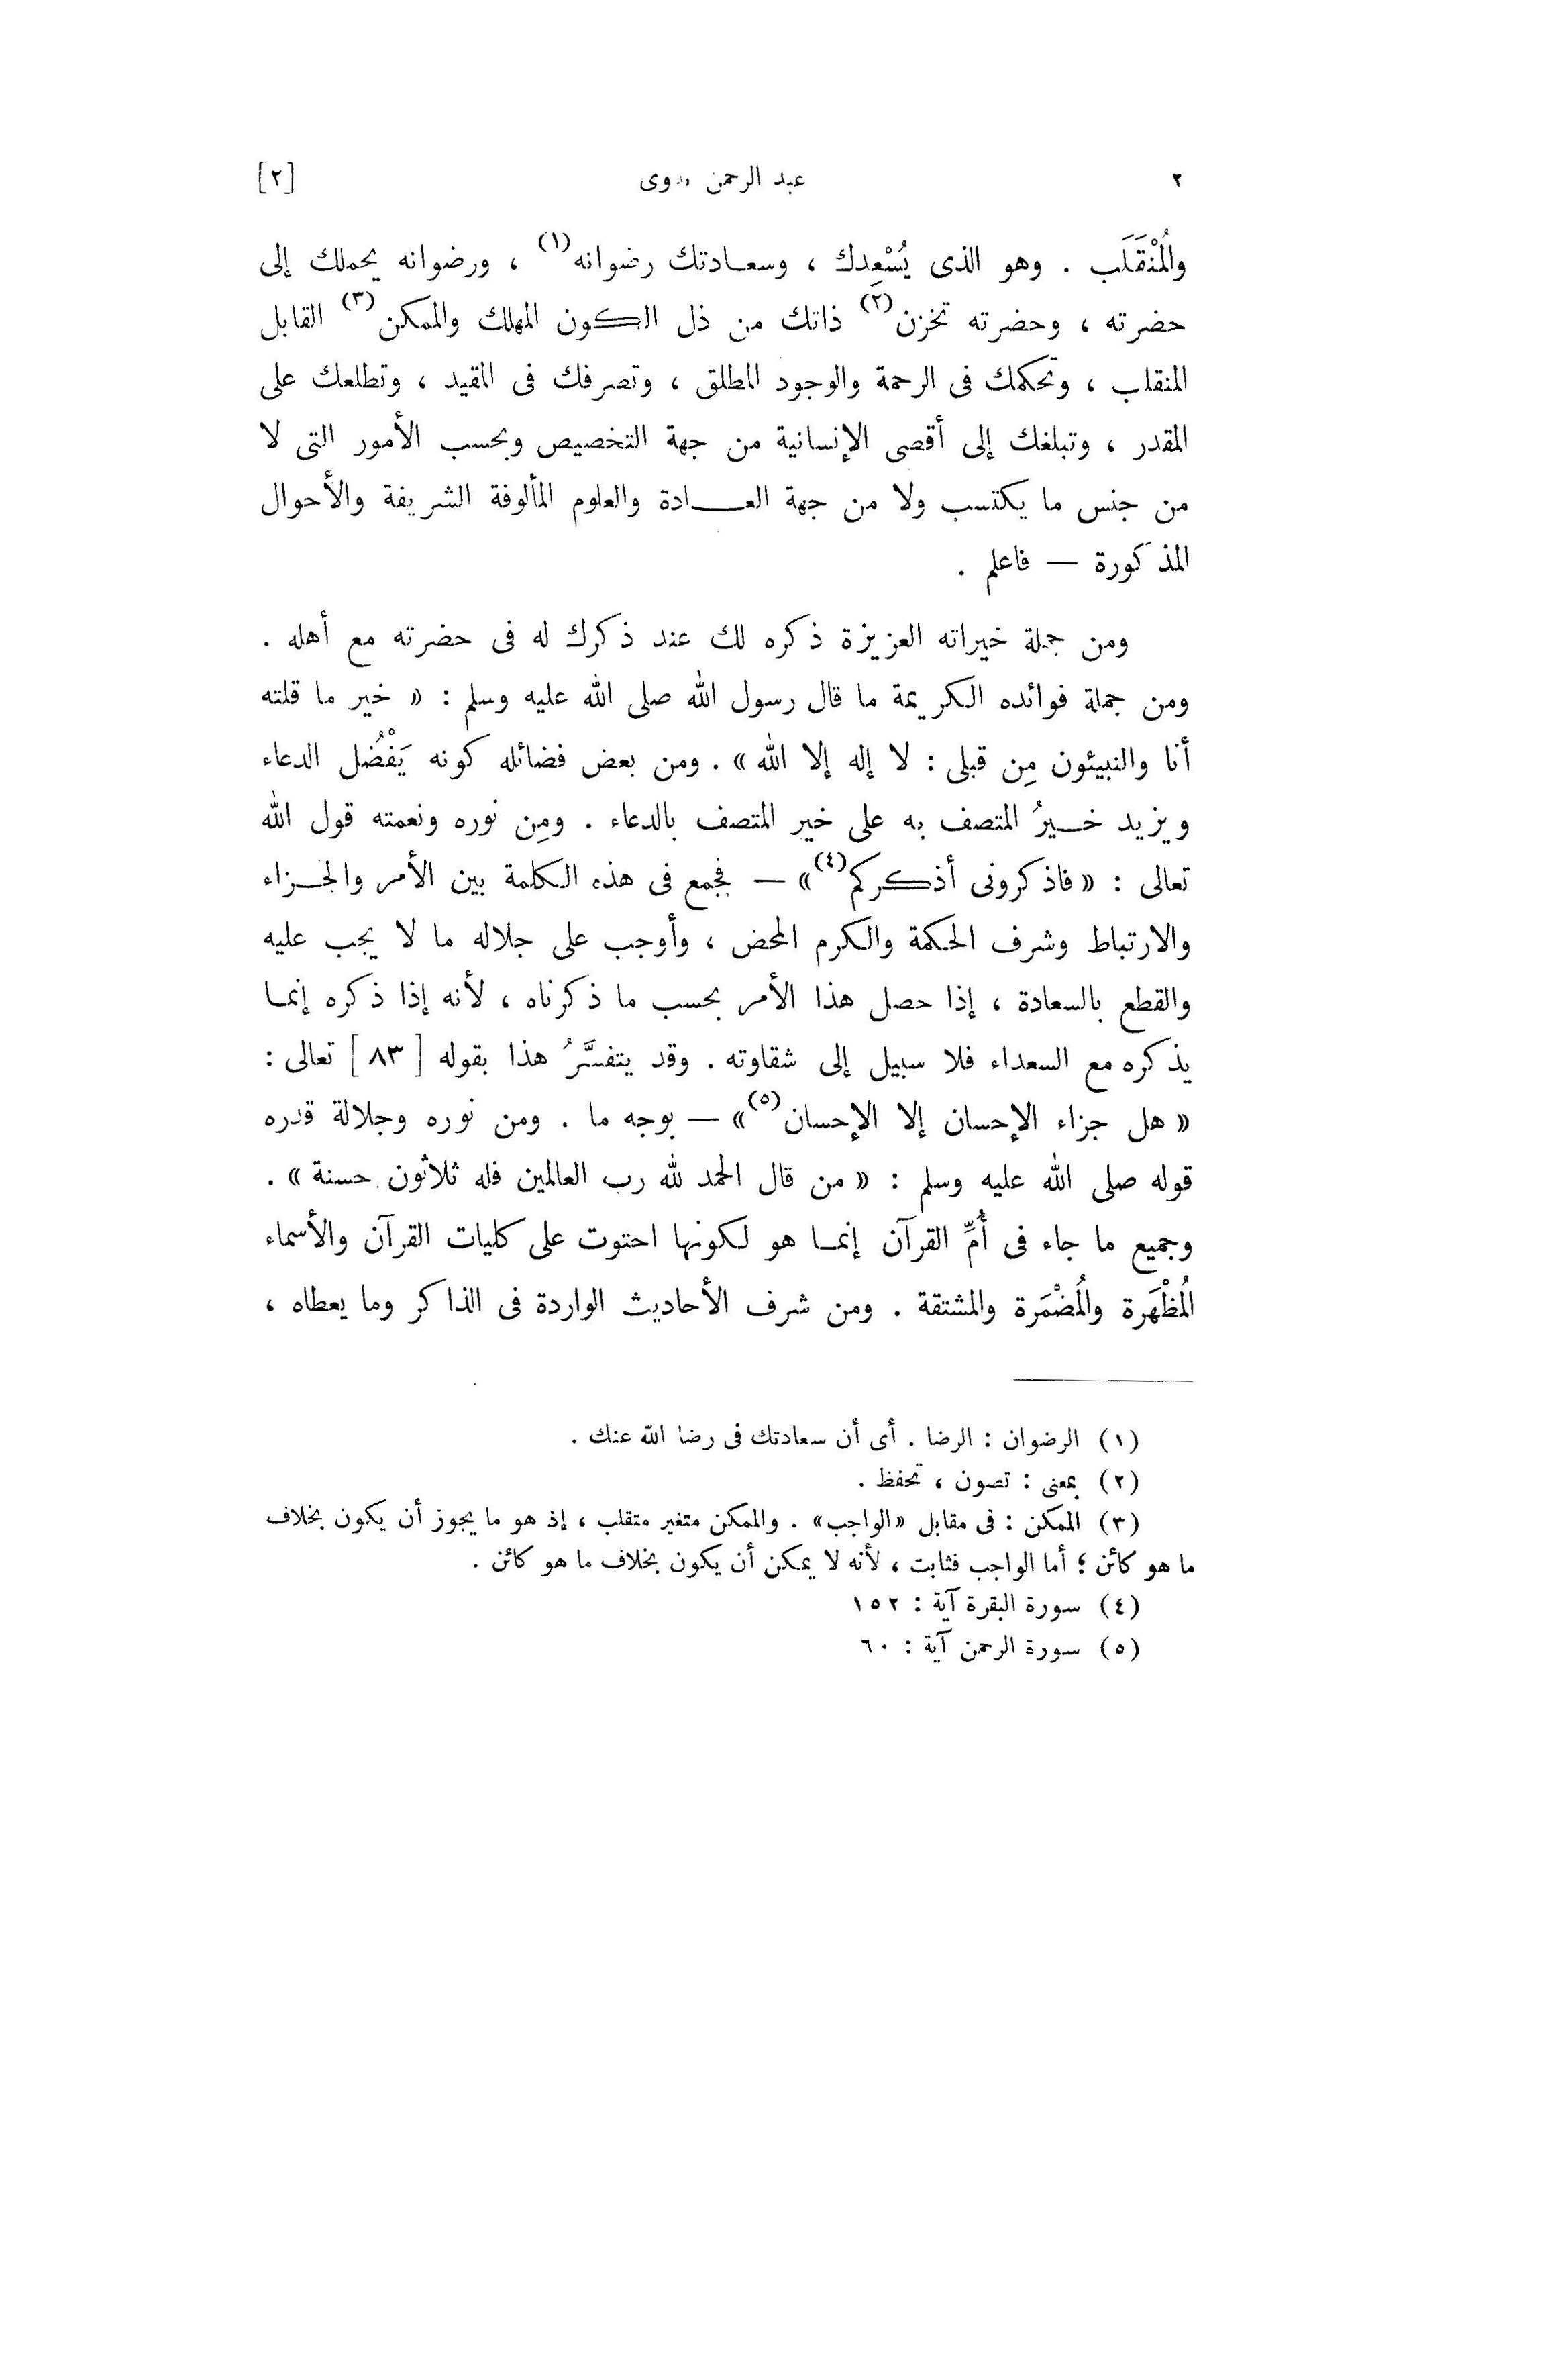 ٢ عبد الرحمن بدوى [٢]
والمُنْقَلَب . وهو الذى يُسْعِدك ، وسعـادتك رضوانه(١) ، ورضوانه يحملك إلى
حضرته ، وحضرته تخزن(٢) ذاتك من ذل الكون المهلك والممكن(٣) القابل
المنقلب ، وتحكمك فى الرحمة والوجود المطلق ، وتصرفك فى المقيد ، وتطلعك على
المقدر ، وتبلغك إلى أقصى الإنسانية من جهة التخصيص وبحسب الأمور التى لا
من جنس ما يكتسب ولا من جهة العـــادة والعلوم المألوفة الشريفة والأحوال
المذكورة — فاعلم .
ومن جملة خيراته العزيزة ذكره لك عند ذكرك له فى حضرته مع أهله .
ومن جملة فوائده الكريمة ما قال رسول الله صلى الله عليه وسلم : « خير ما قلته
أنا والنبيئون مِن قبلى : لا إله إلا الله » . ومن بعض فضائله كونه يَفْضُل الدعاء
ويزيد خـيرُ المتصف به على خير المتصف بالدعاء . ومِن نوره ونعمته قول الله
تعالى : « فاذكرونى أذكركم(٤) » — فجمع فى هذه الكلمة بين الأمر والجـزاء
والارتباط وشرف الحكمة والكرم المحض ، وأوجب على جلاله ما لا يجب عليه
والقطع بالسعادة ، إذا حصل هذا الأمر بحسب ما ذكرناه ، لأنه إذا ذكره إنمـا
يذكره مع السعداء فلا سبيل إلى شقاوته . وقد يتفسَّرُ هذا بقوله [ ٨٣ ] تعالى :
« هل جزاء الإحسان إلا الإحسان(٥) » — بوجه ما . ومن نوره وجلالة قدره
قوله صلى الله عليه وسلم : « من قال الحمد لله رب العالمين فله ثلاثون حسنة » .
وجميع ما جاء فى أُمِّ القرآن إنمـا هو لكونها احتوت على كليات القرآن والأسماء
المُظْهَرة والمُضْمَرة والمشتقة . ومن شرف الأحاديث الواردة فى الذاكر وما يعطاه ،
(١) الرضوان : الرضا . أى أن سعادتك فى رضا الله عنك .
(٢) بمعنى : تصون ، تحفظ .
(٣) الممكن : فى مقابل «الواجب» . والممكن متغير متقلب ، إذ هو ما يجوز أن يكون بخلاف
ما هو كائن ؛ أما الواجب فثابت ، لأنه لا يمكن أن يكون بخلاف ما هو كائن .
(٤) سورة البقرة آية : ١٥٢
(٥) سورة الرحمن آية : ٦٠